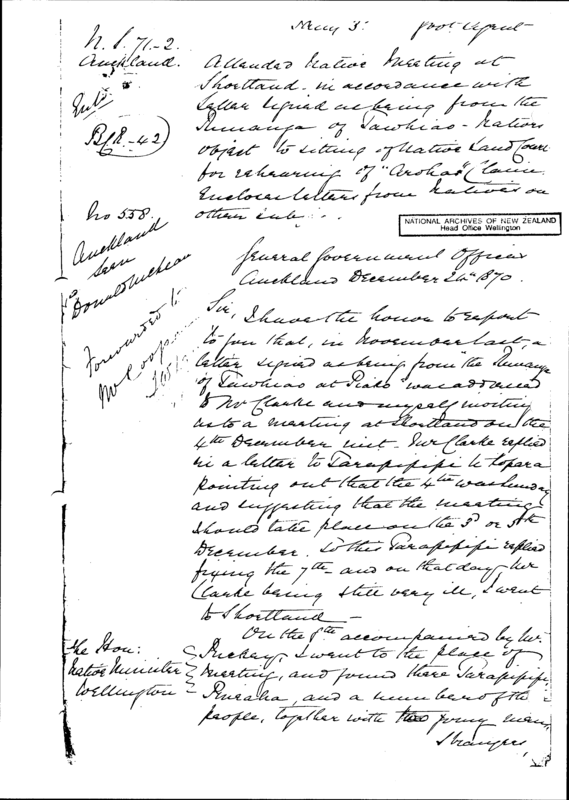 N. S. 71-2.
Auckland.
Attended Native Meeting at
Shortland in accordance with
Letter signed as being from the
Runanga of Tawhiao - Natives
object to sitting of Native Land Court
for rehearing of "Aroha" Claim.
Encloses letters from Natives on
other sub:
No 558.
Auckland
Seen
Donald McLean
Forwarded to
Mr Cooper
NATIONAL ARCHIVES OF NEW ZEALAND
Head Office Wellington
General Government Offices
Auckland December 1870.
Sir, I have the honor to report
to you that, in November last, a
letter signed as being from "the Runanga
of Tawhiao at Piako" was addressed
to Mr Clarke and myself inviting
us to a meeting at Shortland on the
4th December inst. Mr Clarke replied
in a letter to Tarapipipi te Kopara
pointing out that the 4th was Sunday
and suggesting that the meeting
should take place on the 3d or 5th
December. To this Tarapipipi replied
fixing the 7th and on that day Mr
Clarke being still very ill, I went
to Shortland -
On the 8th accompanied by Mr.
Puckey, I went to the place of
meeting, and found there Tarapipipi,
and a number of the
people, together with two young men,
strangers,
The Hon:
Native Minister
Wellington